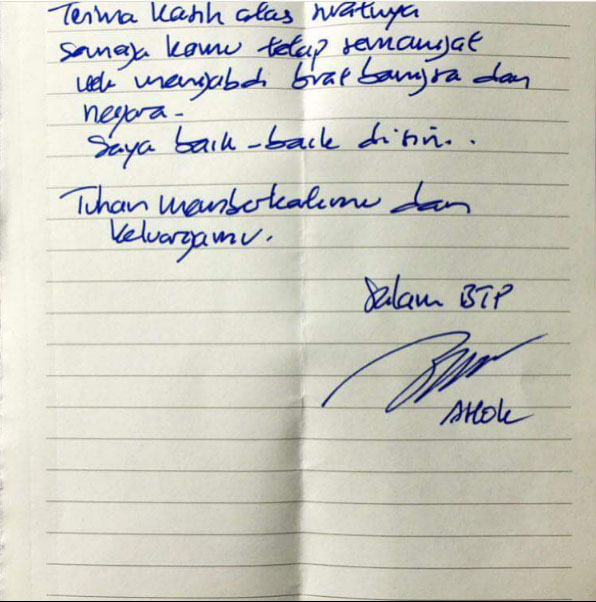 Terima Kasih atas suratnya
Semoga kamu tetap semangat
utk mengabdi buat bangsa dan
negara -
Saya baik - baik disini..
Tuhan memberkatimu dan
keluargamu.
Salam BTP
AHok